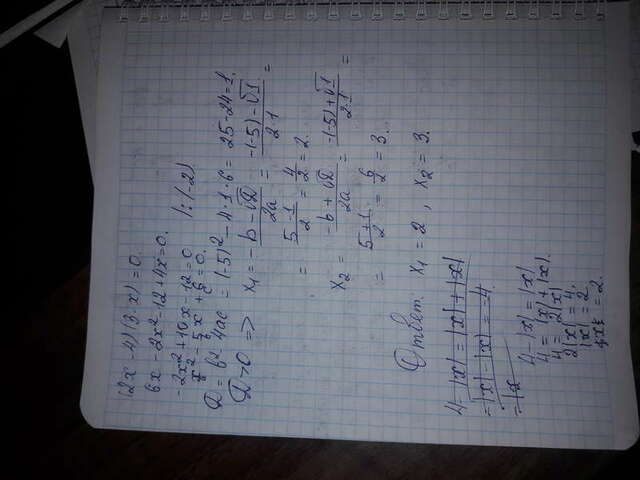 (2x-4)(3-x)=0.
6x-2x²-12+4x=0.
-2x²+10x-12=0 /:(-2)
x²-5x+6=0.
D=b²-4ac=(-5)²-4·1·6=25-24=1.
D>0 => x₁=(-b-√D)/2a=(-(-5)-√1)/2·1=
=(5-1)/2=4/2=2.
x₂=(-b+√D)/2a=(-(-5)+√1)/2·1=
=(5+1)/2=6/2=3.
Ответ. x₁=2, x₂=3.
4-|x|=|x|+|x|
=|x|-|x|=-4
=|x
4-|x|=|x|
4=|x|+|x|.
4=2|x|
2|x|=4.
|x|=2
x=2.